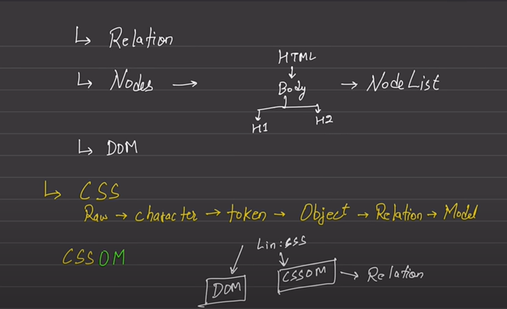 ↳ Relation
HTML
↳ Nodes → Body → NodeList
H1 H2
↳ DOM
↳ CSS
Raw → character → token → Object → Relation → Model
CSSOM
Lin:CSS
DOM CSSOM → Relation